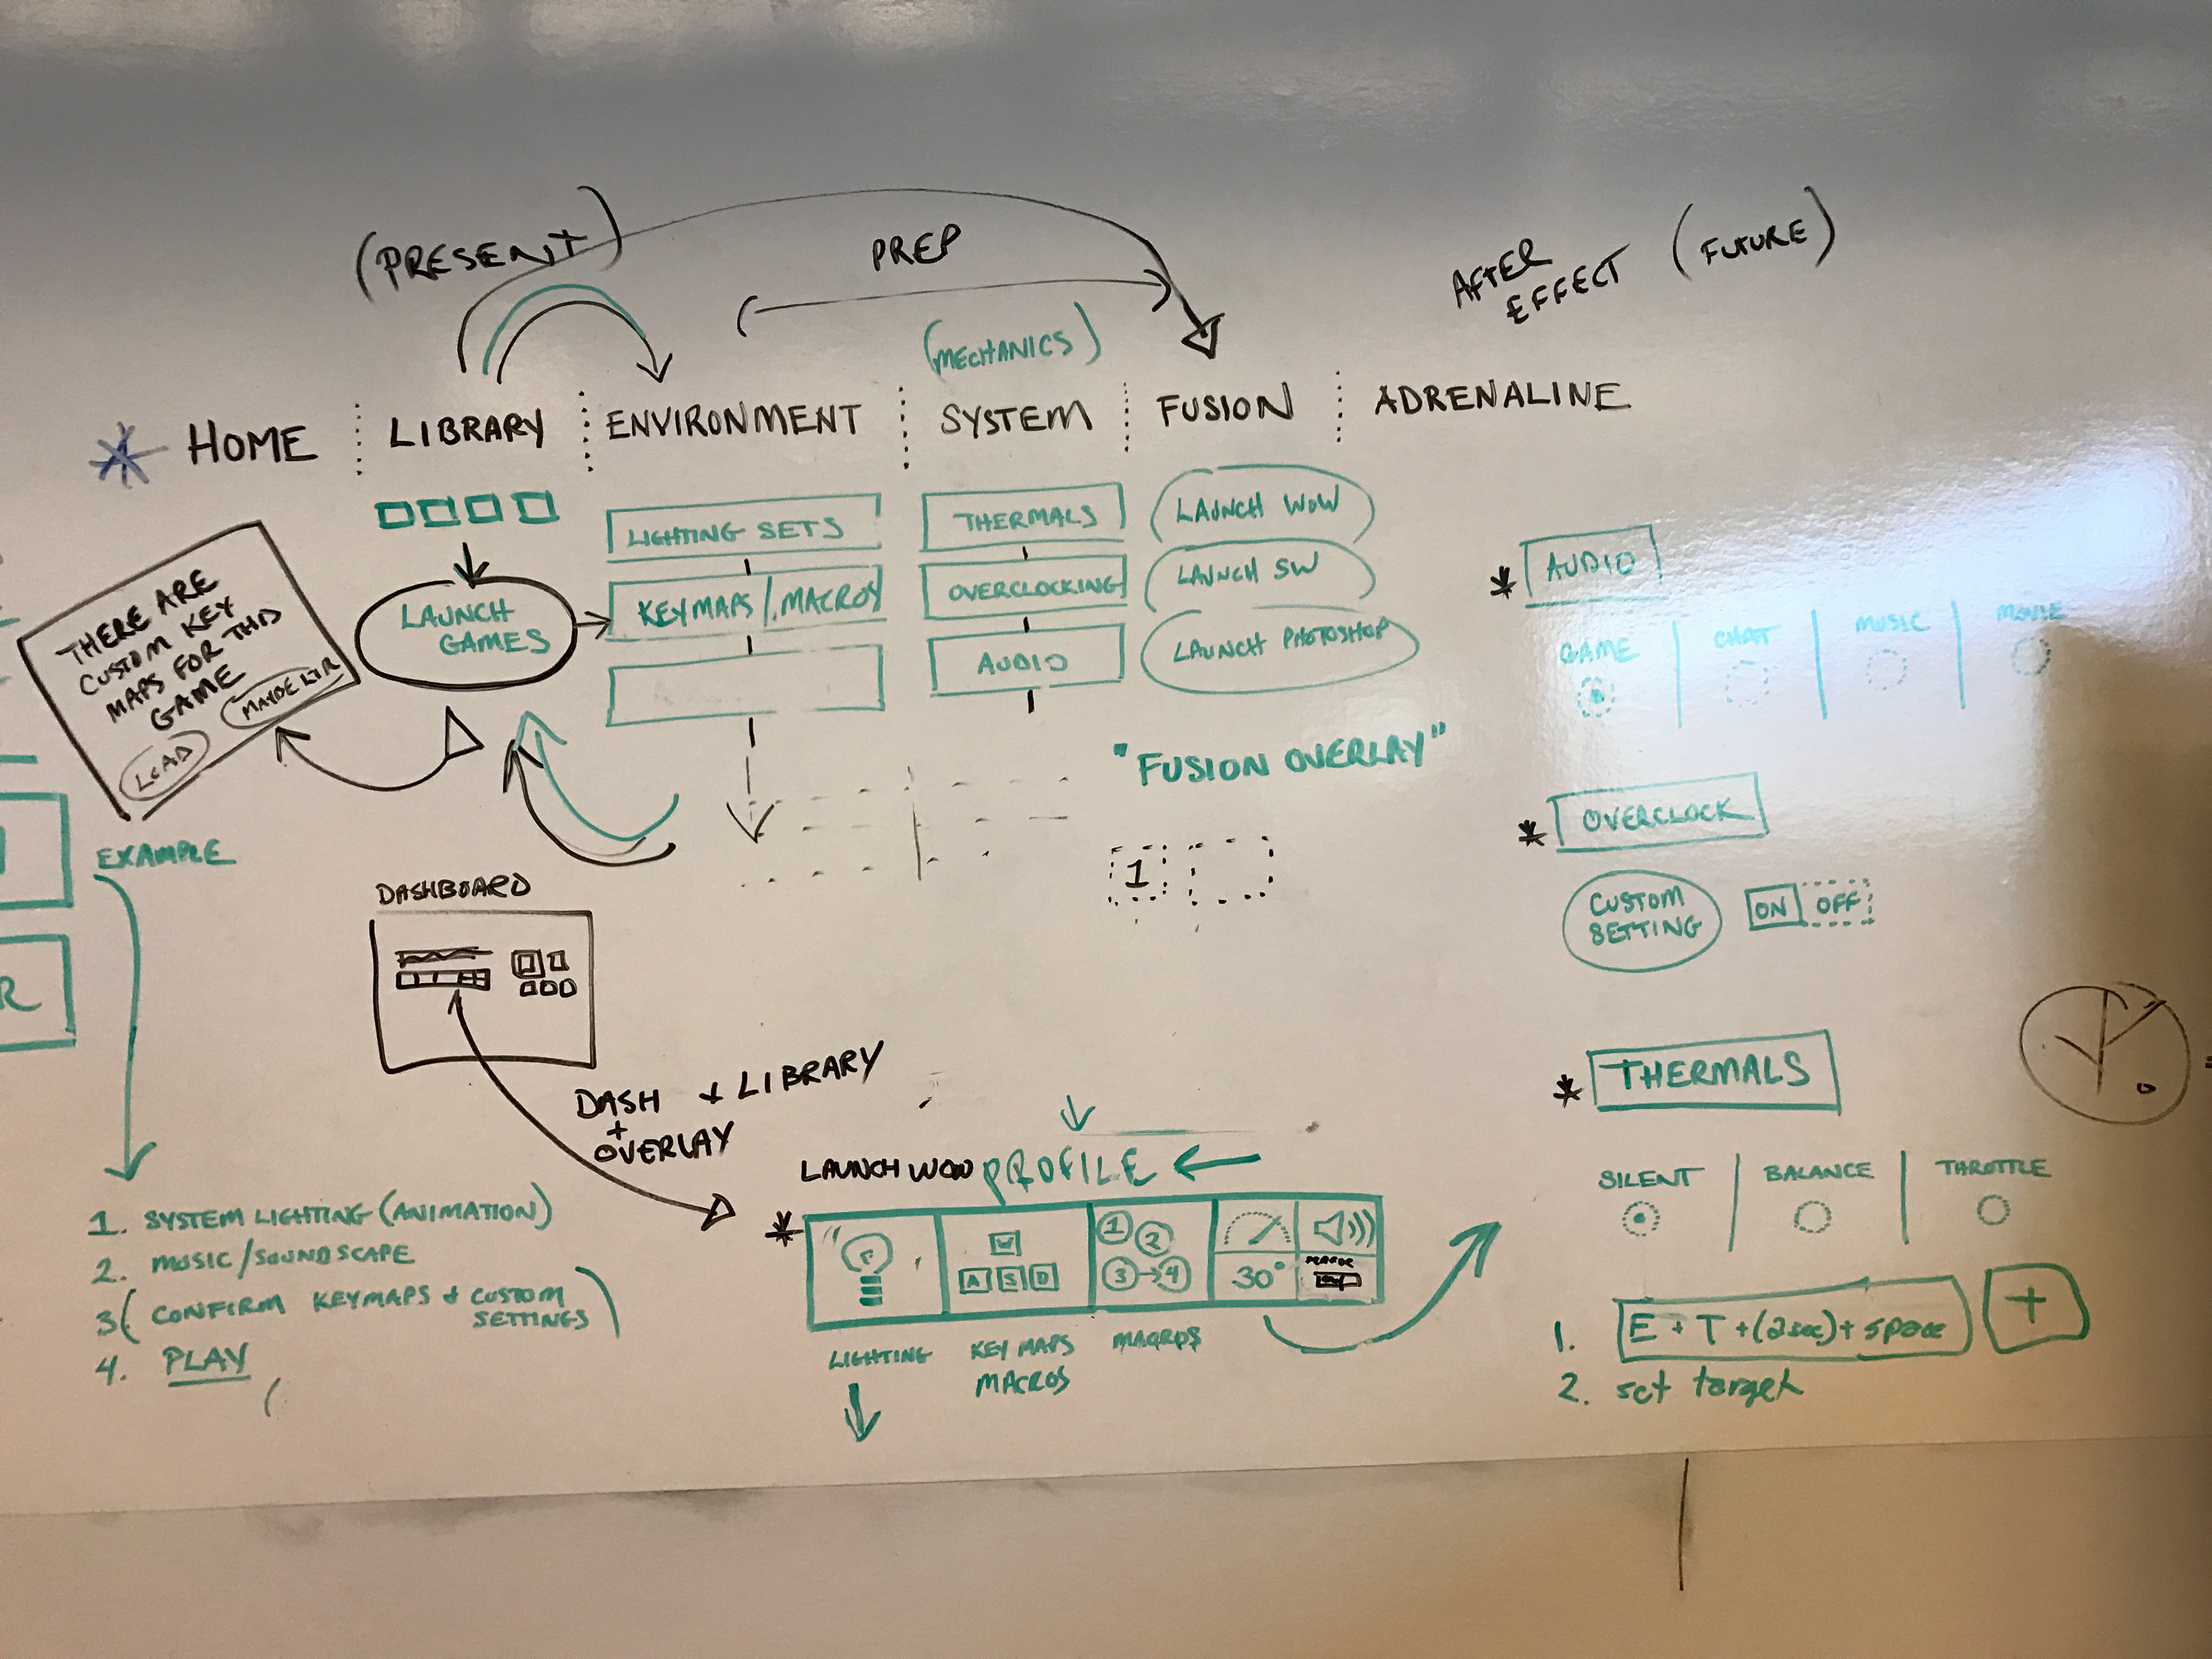 (PRESENT)
PREP
AFTER
EFFECT (FUTURE)
(MECHANICS)
* HOME
LIBRARY
ENVIRONMENT
SYSTEM
FUSION
ADRENALINE
THERE ARE
CUSTOM KEY
MAPS FOR THIS
GAME
LOAD
LAUNCH
GAMES
LIGHTING SETS
KEYMAPS / MACROS
THERMALS
OVERCLOCKING
AUDIO
LAUNCH WOW
LAUNCH SW
LAUNCH PHOTOSHOP
"FUSION OVERLAY"
1
EXAMPLE
R
1. SYSTEM LIGHTING (ANIMATION)
2. MUSIC/SOUNDSCAPE
3 ( CONFIRM KEYMAPS + CUSTOM
SETTINGS )
4. PLAY
DASHBOARD
DASH + LIBRARY
+
OVERLAY
LAUNCH WOW PROFILE
*
W
A S D
1 2
3 → 4
30°
LIGHTING
KEY MAPS
MACROS
MACROS
* AUDIO
GAME
CHAT
MUSIC
MOVIE
* OVERCLOCK
CUSTOM
SETTING
ON OFF
* THERMALS
SILENT
BALANCE
THROTTLE
1. E + T + (2sec) + space +
2. set target